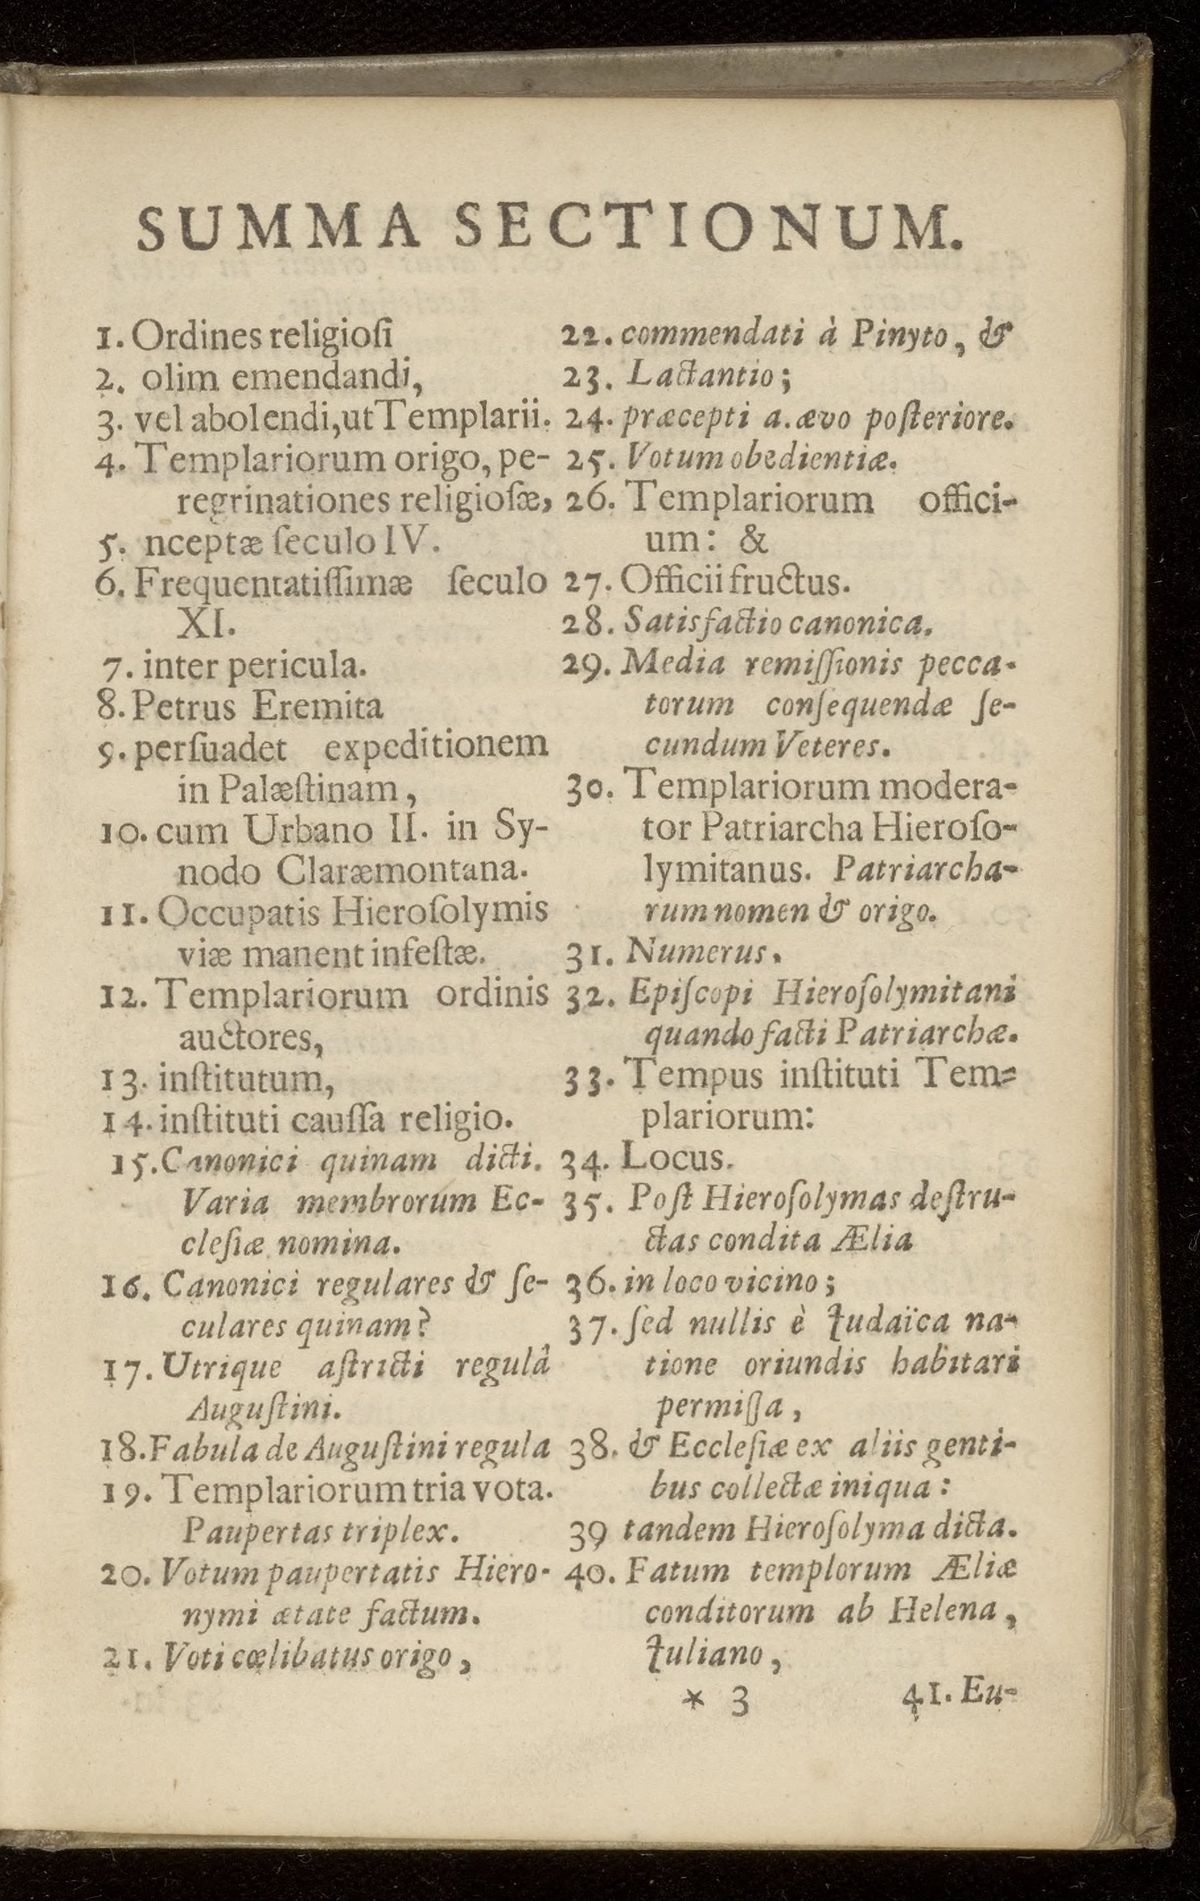 SUMMA SECTIONUM.
1. Ordines religioſi
2. olim emendandi,
3. vel abolendi, ut Templarii.
4. Templariorum origo, pe-
regrinationes religioſæ,
5. nceptæ ſeculo IV.
6. Frequentatiſſimæ ſeculo
XI.
7. inter pericula.
8. Petrus Eremita
9. perſuadet expeditionem
in Palæſtinam,
10. cum Urbano II. in Sy-
nodo Claræmontana.
11. Occupatis Hieroſolymis
viæ manent infeſtæ.
12. Templariorum ordinis
auctores,
13. inſtitutum,
14. inſtituti cauſſa religio.
15. Canonici quinam dicti.
Varia membrorum Ec-
cleſiæ nomina.
16. Canonici regulares & ſe-
culares quinam?
17. Utrique aſtricti regulâ
Auguſtini.
18. Fabula de Auguſtini regula
19. Templariorum tria vota.
Paupertas triplex.
20. Votum paupertatis Hiero-
nymi ætate factum.
21. Voti cœlibatus origo,
22. commendati à Pinyto, &
23. Lactantio;
24. præcepti a. ævo poſteriore.
25. Votum obedientiæ.
26. Templariorum offici-
um: &
27. Officii fructus.
28. Satisfactio canonica.
29. Media remiſſionis pecca-
torum conſequendæ ſe-
cundum Veteres.
30. Templariorum modera-
tor Patriarcha Hieroſo-
lymitanus. Patriarcha-
rum nomen & origo.
31. Numerus.
32. Epiſcopi Hieroſolymitani
quando facti Patriarchæ.
33. Tempus inſtituti Tem-
plariorum:
34. Locus.
35. Poſt Hieroſolymas deſtru-
ctas condita Ælia
36. in loco vicino;
37. ſed nullis è Judaïca na-
tione oriundis habitari
permiſſa,
38. & Eccleſiæ ex aliis genti-
bus collectæ iniqua:
39 tandem Hieroſolyma dicta.
40. Fatum templorum Æliæ
conditorum ab Helena,
Juliano,
* 3 41. Eu-